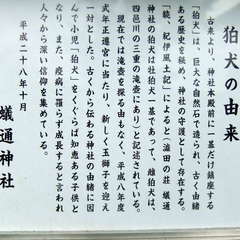 狛犬の由来
古来より、神社本殿前に一基だけ鎮座する
「狛犬」は、巨大な自然石で造られ、古く由緒
ある歴史を秘め、神社の守護として存在する。
「続、紀伊風土記」によると「瀧田の荘 蟻通
神社の狛犬は牡狛犬一基であって、雌狛犬は、
四邑川の三重の滝壺にあり」と記述されている。
現在では滝壺を探る由もなく、平成八年度
式年正遷宮に当たり、新しく玉獅子を迎え
一対とした。古くから伝わる神社の由緒に因
んで小児「狛犬」をくぐらば知恵ある子供と
なり、また、疫病に罹らず成長すると言われ
人々から深い信仰を集めている。
平成二十八年十月
蟻通神社